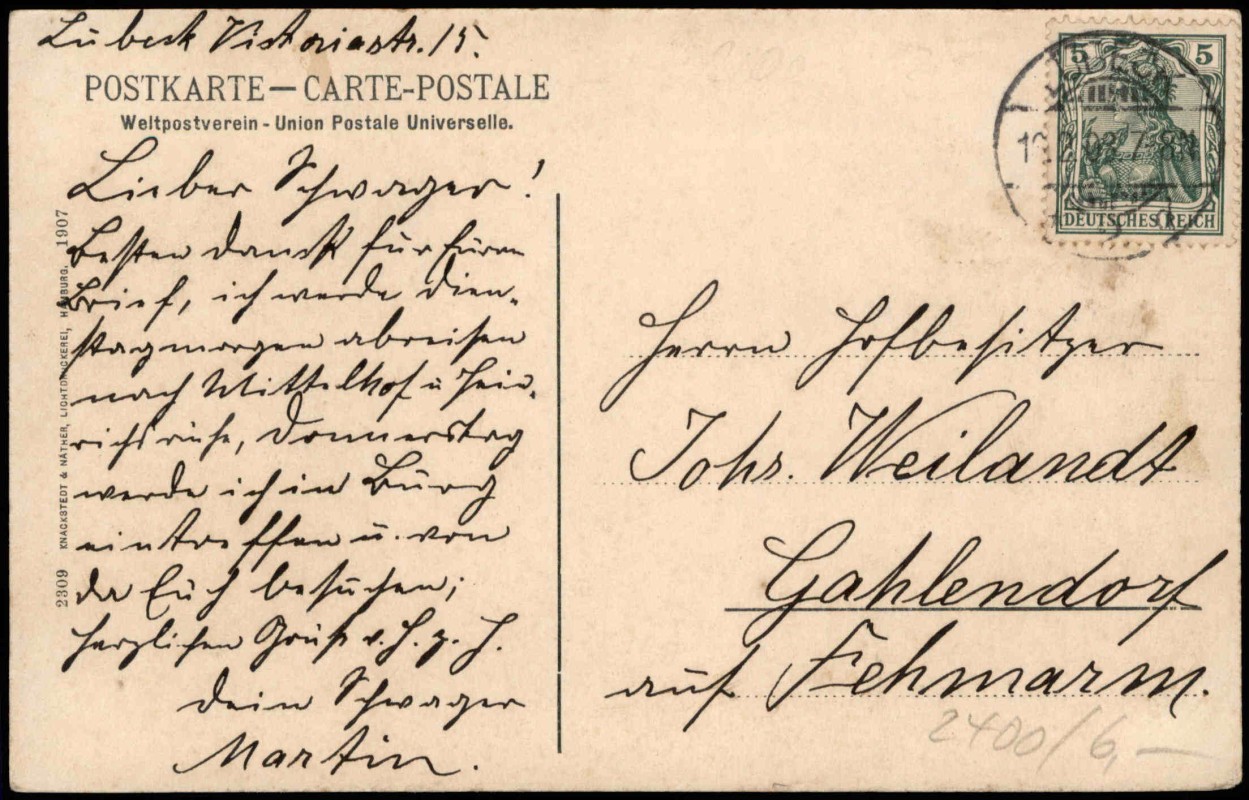 Lübeck Victoriastr. 15.
POSTKARTE — CARTE-POSTALE
Weltpostverein - Union Postale Universelle.
Lieber Schwager!
Besten Dank für Euren
Brief, ich werde Dien-
stagmorgen abreisen
nach Mittelhof u Hein-
richsruhe, Donnerstag
werde ich in Burg
eintreffen u. von
da Euch besuchen;
herzlichen Gruß v. H. z. H.
Dein Schwager
Martin.
2309 KNACKSTEDT & NÄTHER, LICHTDRUCKEREI, HAMBURG. 1907
5 5
DEUTSCHES REICH
7-8N
Herrn Hofbesitzer
Johs. Weilandt
Gahlendorf
auf Fehmarn.
2400/6,—